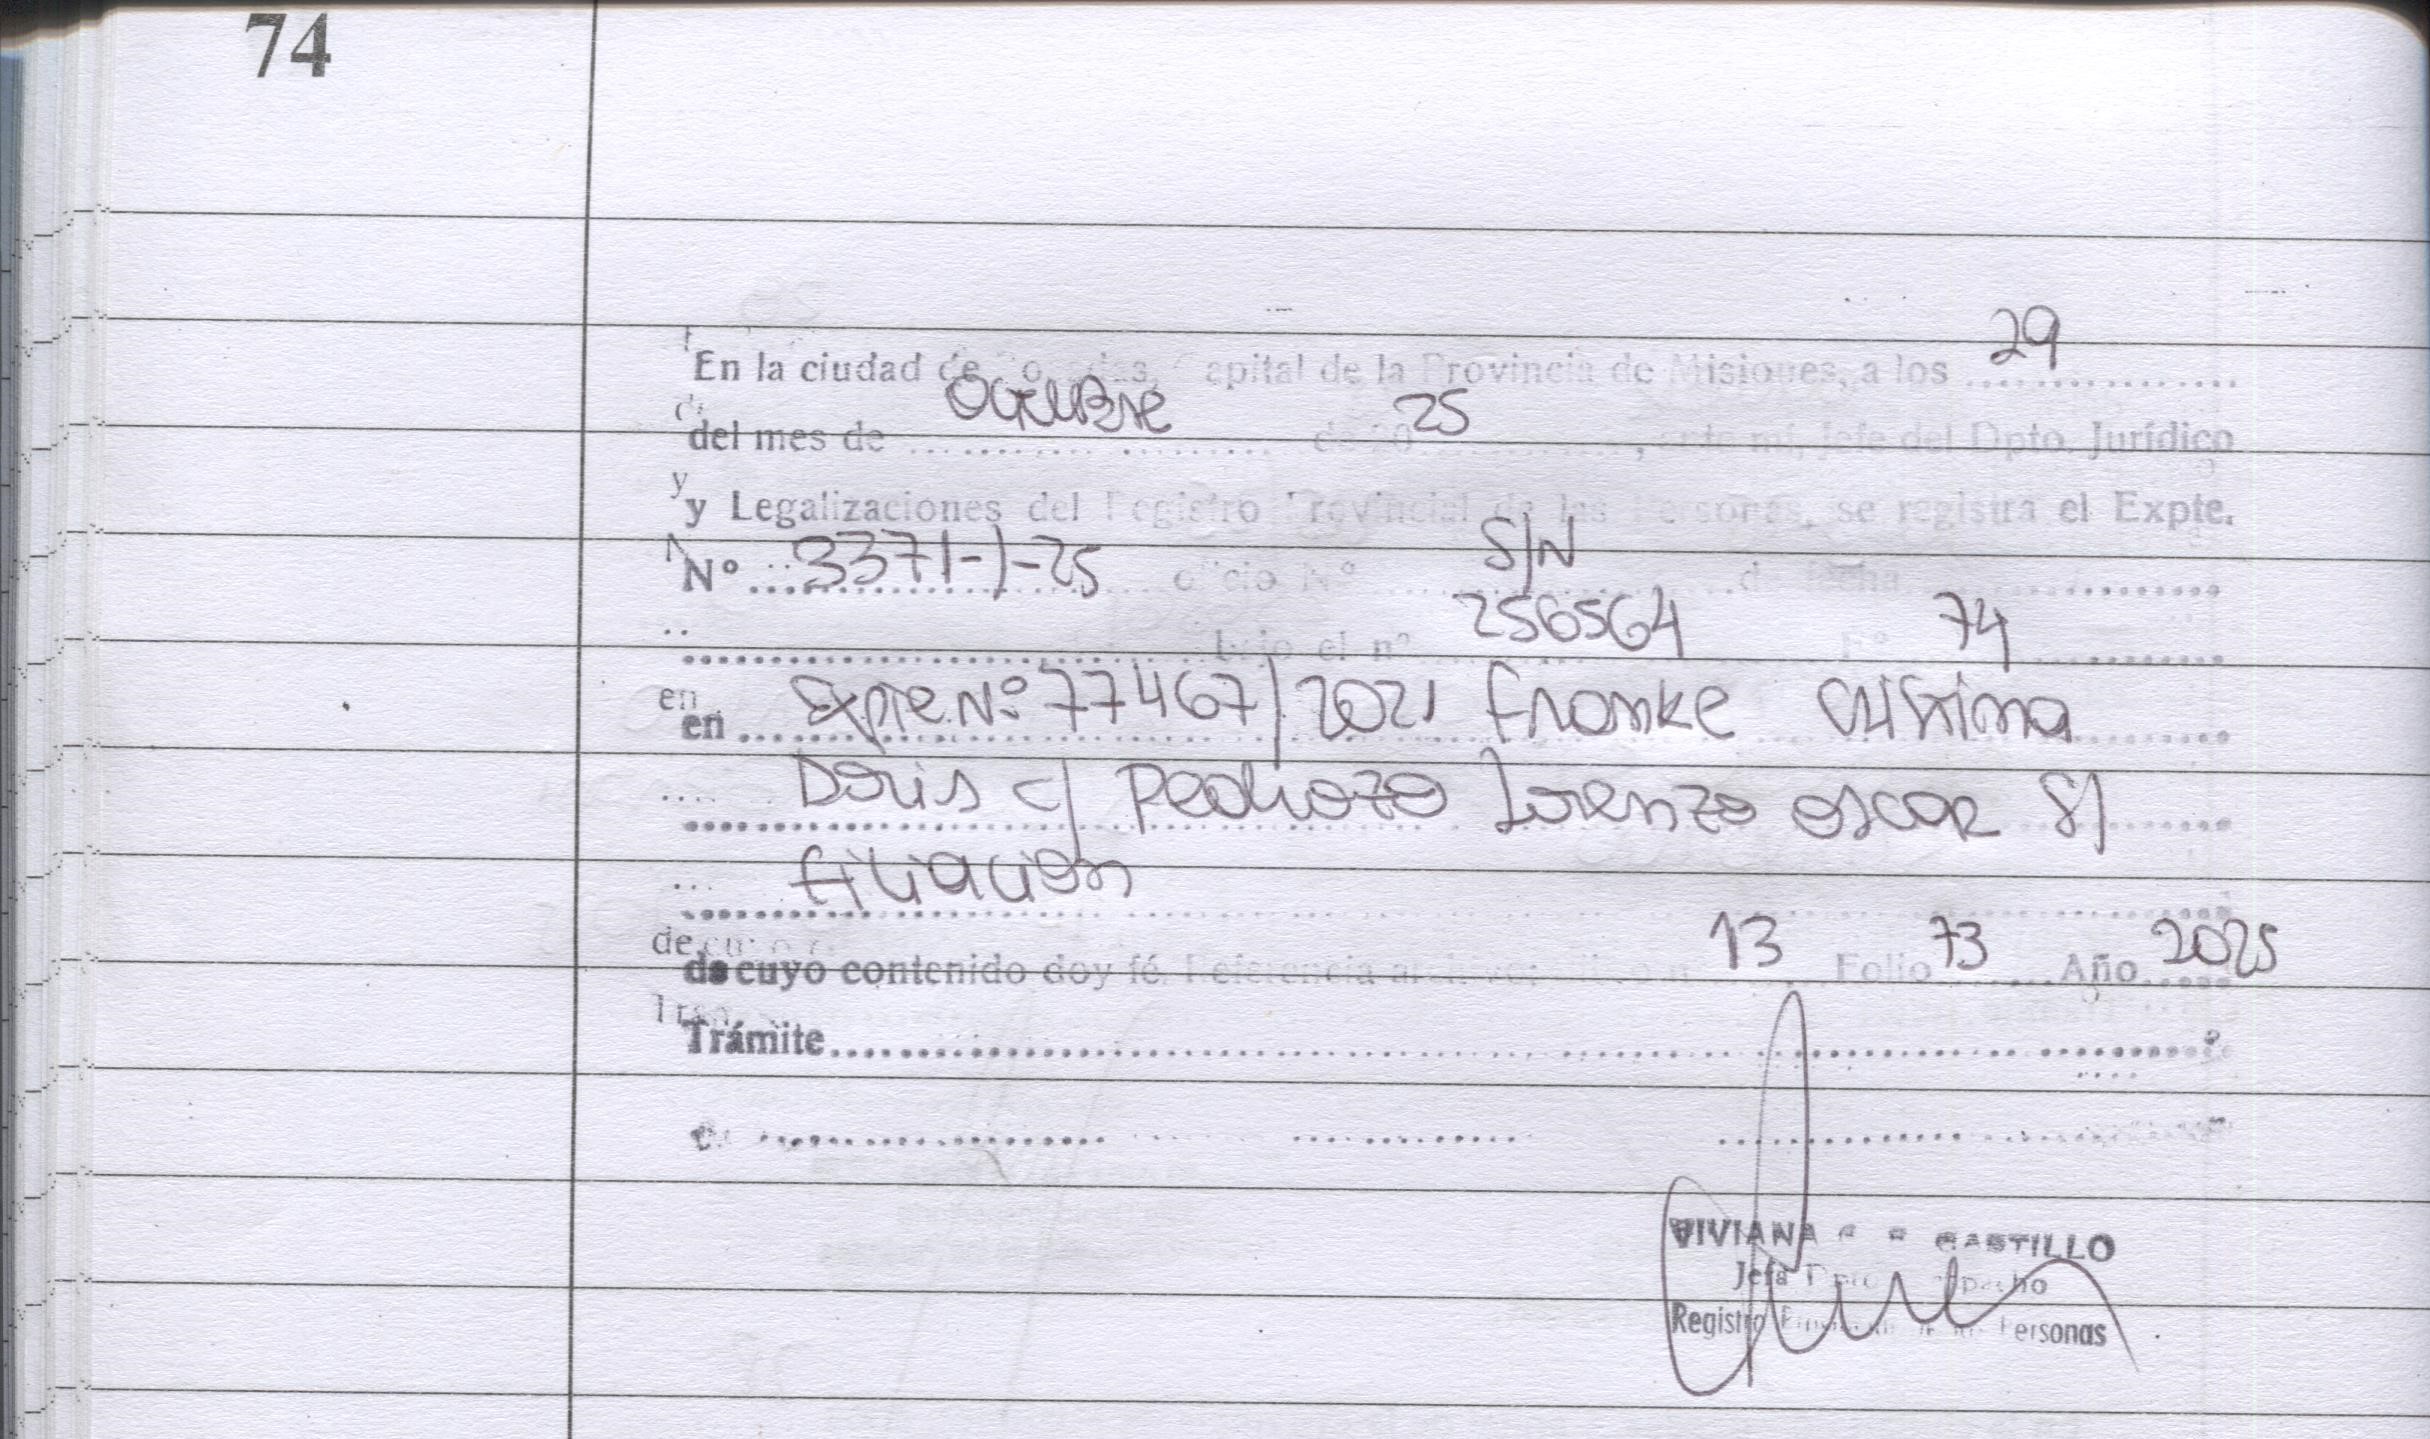 74
En la ciudad de Posadas, Capital de la Provincia de Misiones, a los 29
del mes de Octubre de 2025, ante mi, Jefe del Dpto. Jurídico
y Legalizaciones del Registro Provincial de las Personas, se registra el Expte.
Nº 3371-J-25 oficio Nº S/N de fecha
bajo el nº 256564 Fº 74
en Expte. Nº 77467/2021 Franke Cristina
Doris c/ Pedrozo Lorenzo Oscar S/
filiación
de cuyo contenido doy fé. Referencia archivo: 13 Folio 73 Año 2025
Trámite
VIVIANA CASTILLO
Jefa Dpto. Despacho
Registro Provincial de las Personas